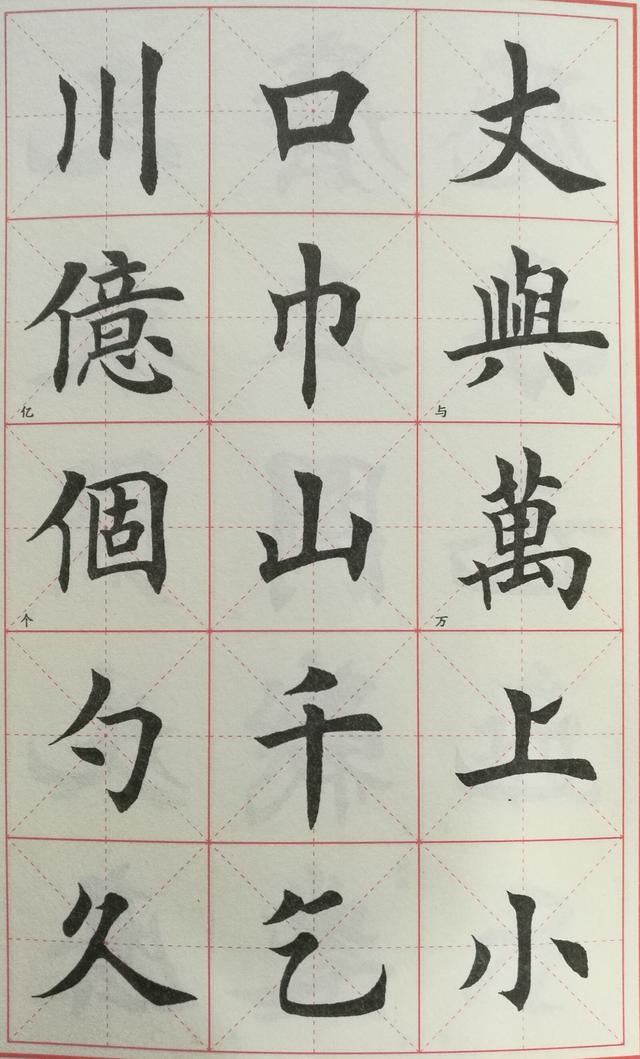 丈
與
与
萬
万
上
小
口
巾
山
千
乞
川
億
亿
個
个
勺
久